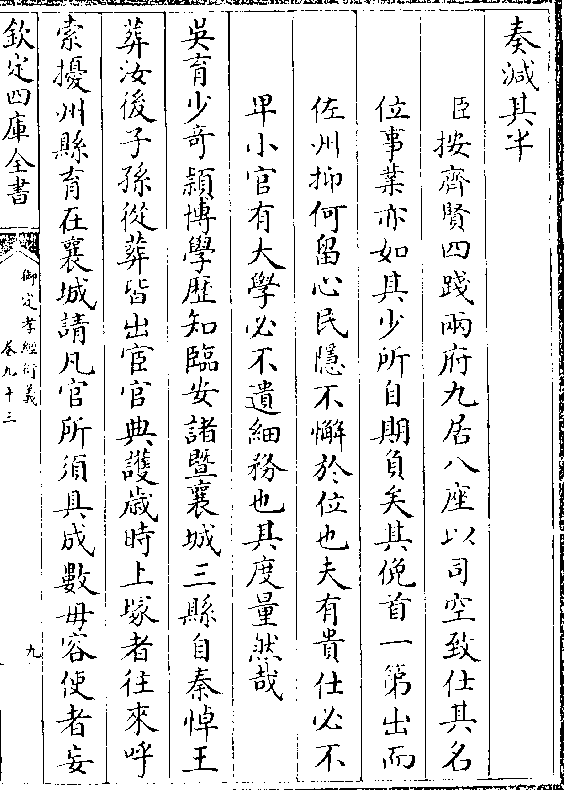 奏減其半
臣按齊賢四踐兩府九居八座以司空致仕其名
位事業亦如其少所自期負矣其俛首一第出而
佐州抑何留心民隱不懈於位也夫有貴仕必不
卑小官有大學必不遺細務也其度量然哉
吳育少奇頴博學歷知臨安諸暨襄城三縣自秦悼王
葬汝後子孫從葬皆出宦官典護歲時上塚者往來呼
索擾州縣育在襄城請凡官所須具成數毋容使者妄
欽定四庫全書
御定孝經衍義
卷九十三
九